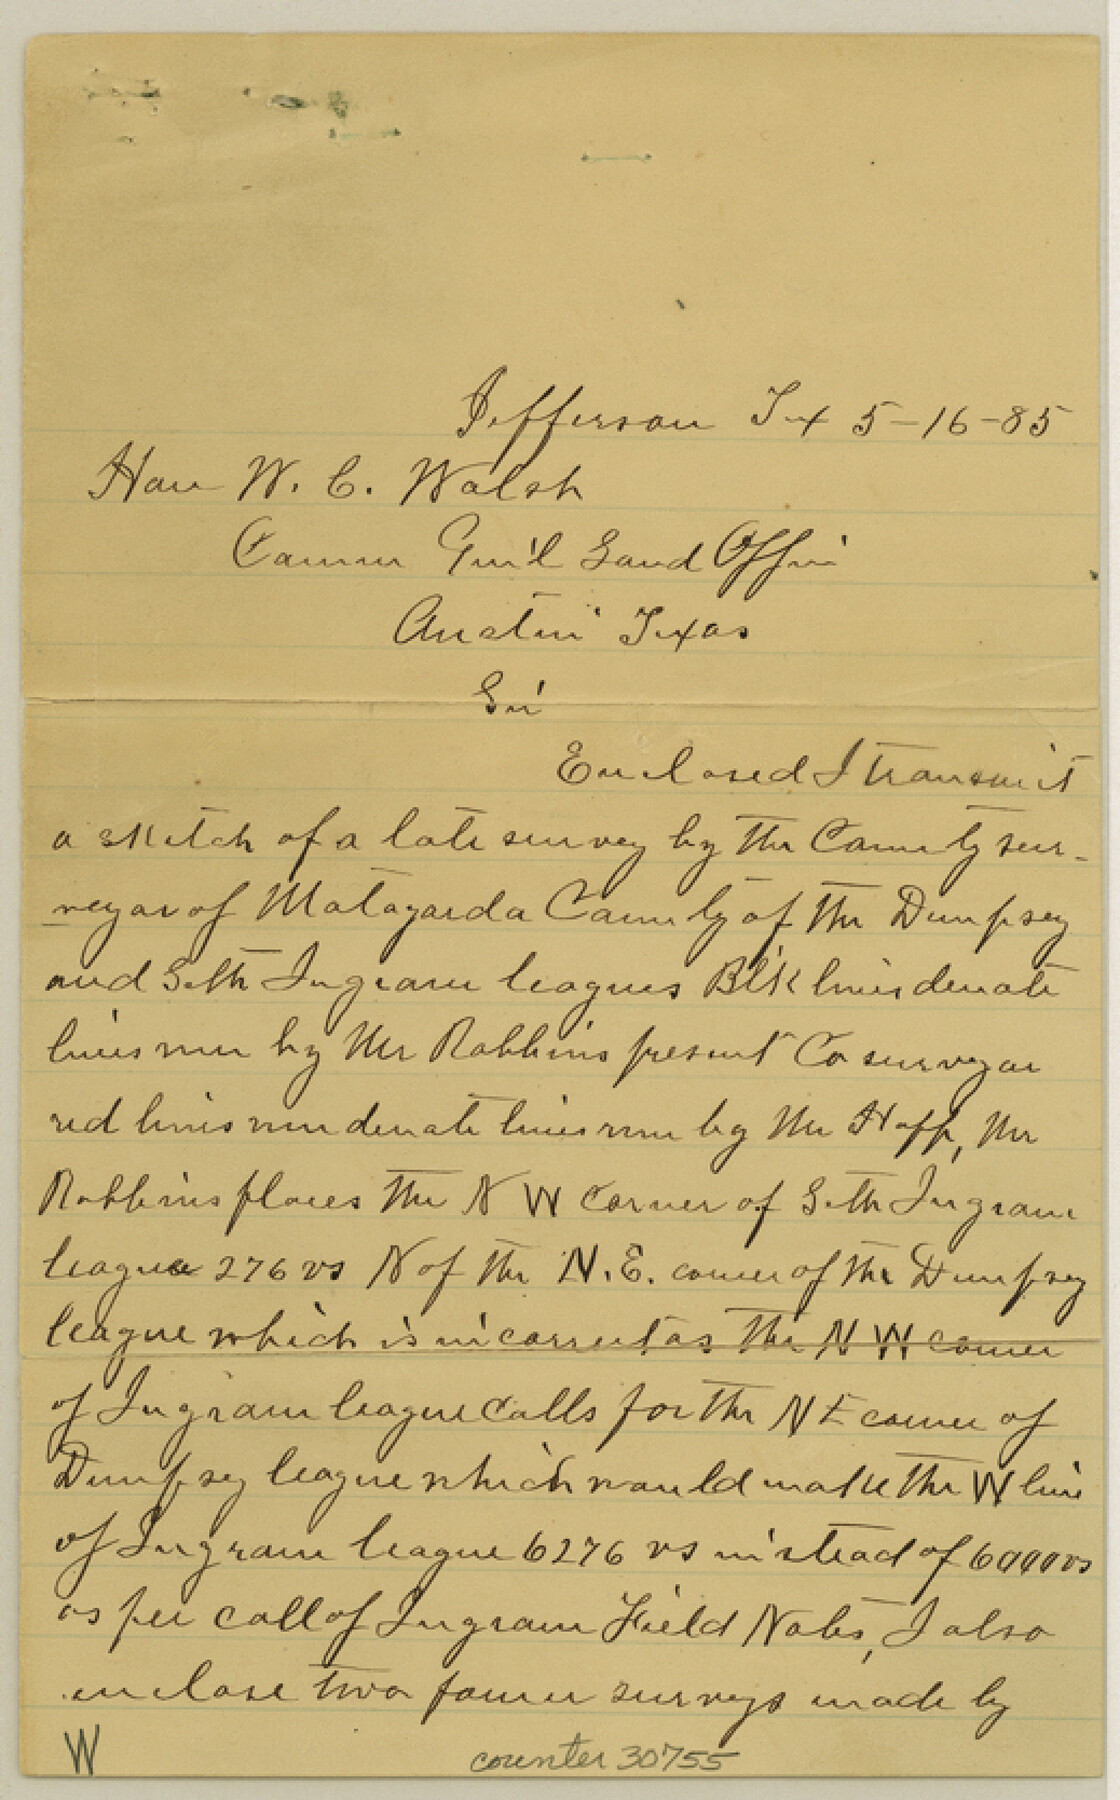 Jefferson Tex 5-16-85
Hon W. C. Walsh
Commr Gen'l Land Office
Austin Texas
Sir
Enclosed I transmit
a sketch of a late survey by the County sur-
veyor of Matagorda County of the Dempsey
and Seth Ingram leagues Blk lines denote
lines run by Mr Robbins present Co surveyor
red lines run denote lines run by Mr Hoff, Mr
Robbins places the N W corner of Seth Ingram
league 276 vs N of the N.E. corner of the Dempsey
league which is incorrect as the N W corner
of Ingram league calls for the N E corner of
Dempsey league which would make the W line
of Ingram league 6276 vs instead of 6000 vs
as per call of Ingram Field Notes, I also
enclose two former surveys made by
W
counter 30755